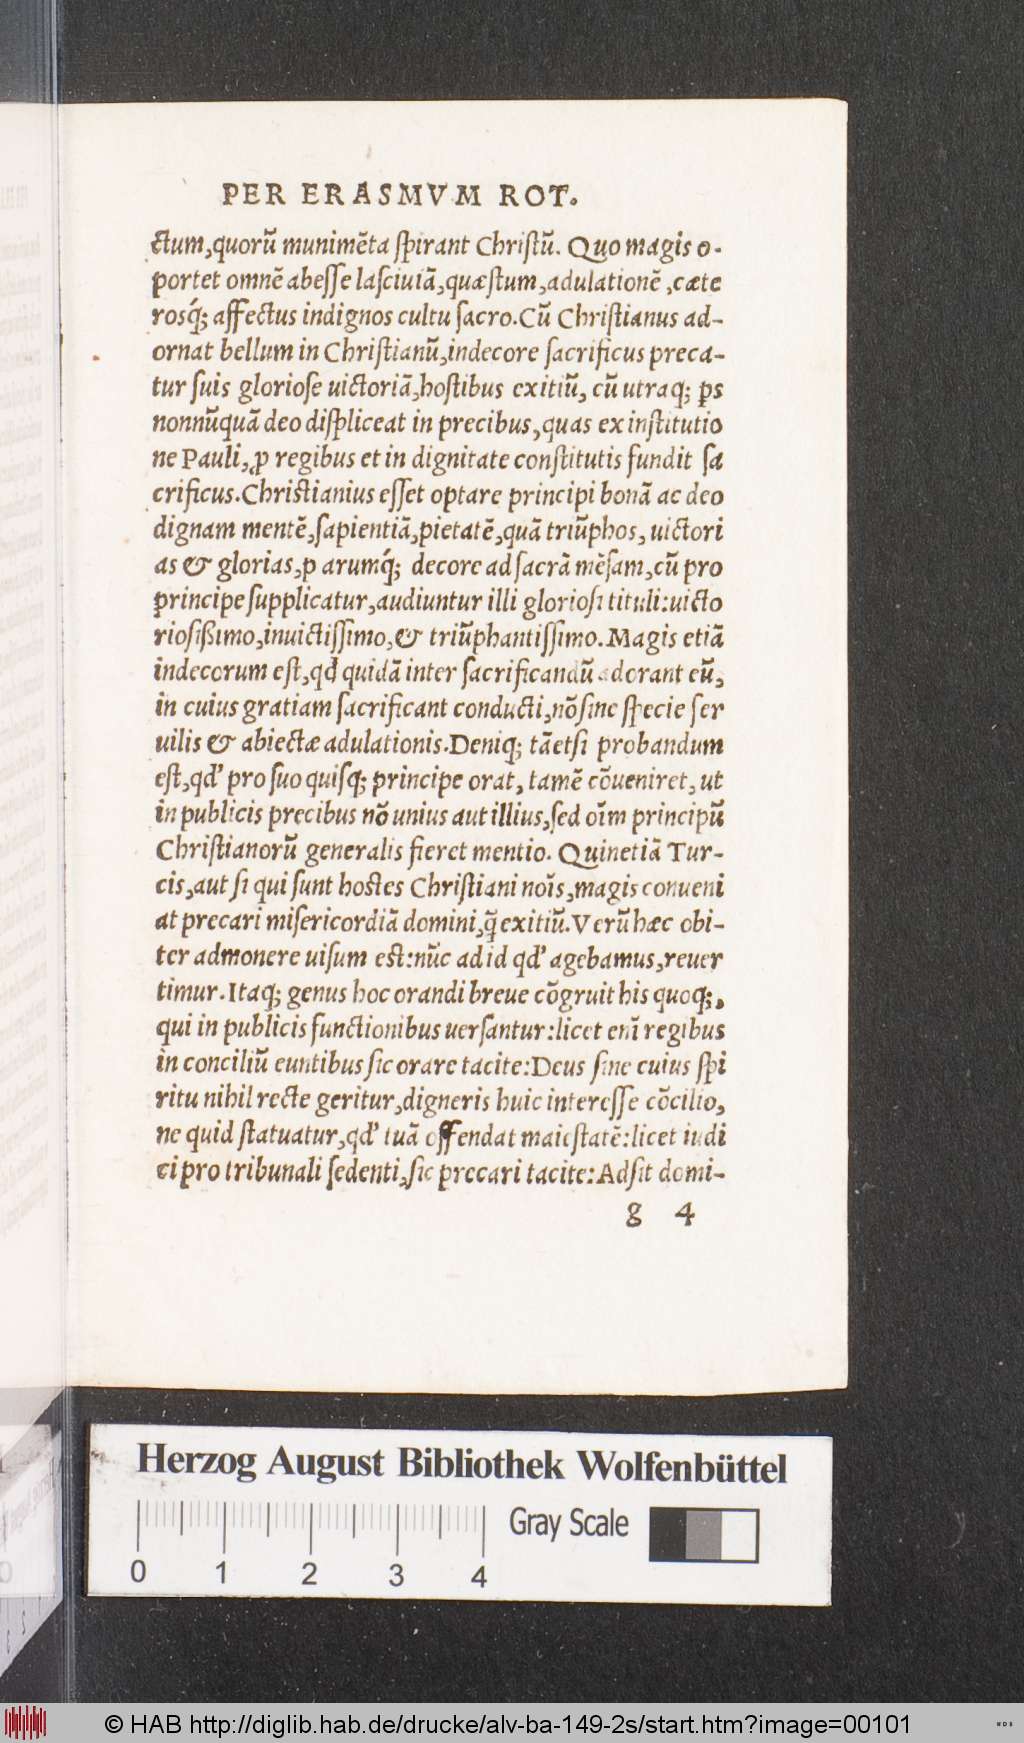 PER ERASMVM ROT.
ctum,quorũ munimẽta spirant Christũ. Quo magis o-
portet omnẽ abesse lasciuiã,quæstum,adulationẽ,cæte
rosq́; affectus indignos cultu sacro.Cũ Christianus ad-
ornat bellum in Christianũ,indecore sacrificus preca-
tur suis gloriose uictoriã,hostibus exitiũ, cũ utraq; ꝑs
nonnũquã deo displiceat in precibus,quas ex institutio
ne Pauli, ꝓ regibus et in dignitate constitutis fundit sa
crificus.Christianius esset optare principi bonã ac deo
dignam mentẽ,sapientiã,pietatẽ,quã triũphos, uictori
as & glorias,p arumq́; decore ad sacrã mẽsam,cũ pro
principe supplicatur,audiuntur illi gloriosi tituli:uicto
riosißimo,inuictissimo,& triũphantissimo.Magis etiã
indecorum est,qđ quidã inter sacrificandũ adorant eũ,
in cuius gratiam sacrificant conducti,nõ sine specie ser
uilis & abiectæ adulationis.Deniq; tãetsi probandum
est,qđ pro suo quisq; principe orat, tamẽ cõueniret, ut
in publicis precibus nõ unius aut illius,sed oĩm principũ
Christianorũ generalis fieret mentio. Quinetiã Tur-
cis,aut si qui sunt hostes Christiani noĩs,magis conueni
at precari misericordiã domini,q̃ exitiũ.Verũ hæc obi-
ter admonere uisum est:nũc ad id qđ agebamus,reuer
timur.Itaq; genus hoc orandi breue cõgruit his quoq;,
qui in publicis functionibus uersantur:licet enĩ regibus
in conciliũ euntibus sic orare tacite:Deus sine cuius spi
ritu nihil recte geritur,digneris huic interesse cõcilio,
ne quid statuatur,qđ tuã offendat maiestatẽ:licet iudi
ci pro tribunali sedenti,sic precari tacite:Adsit domi-
g 4
Herzog August Bibliothek Wolfenbüttel
Gray Scale
0 1 2 3 4
© HAB http://diglib.hab.de/drucke/alv-ba-149-2s/start.htm?image=00101